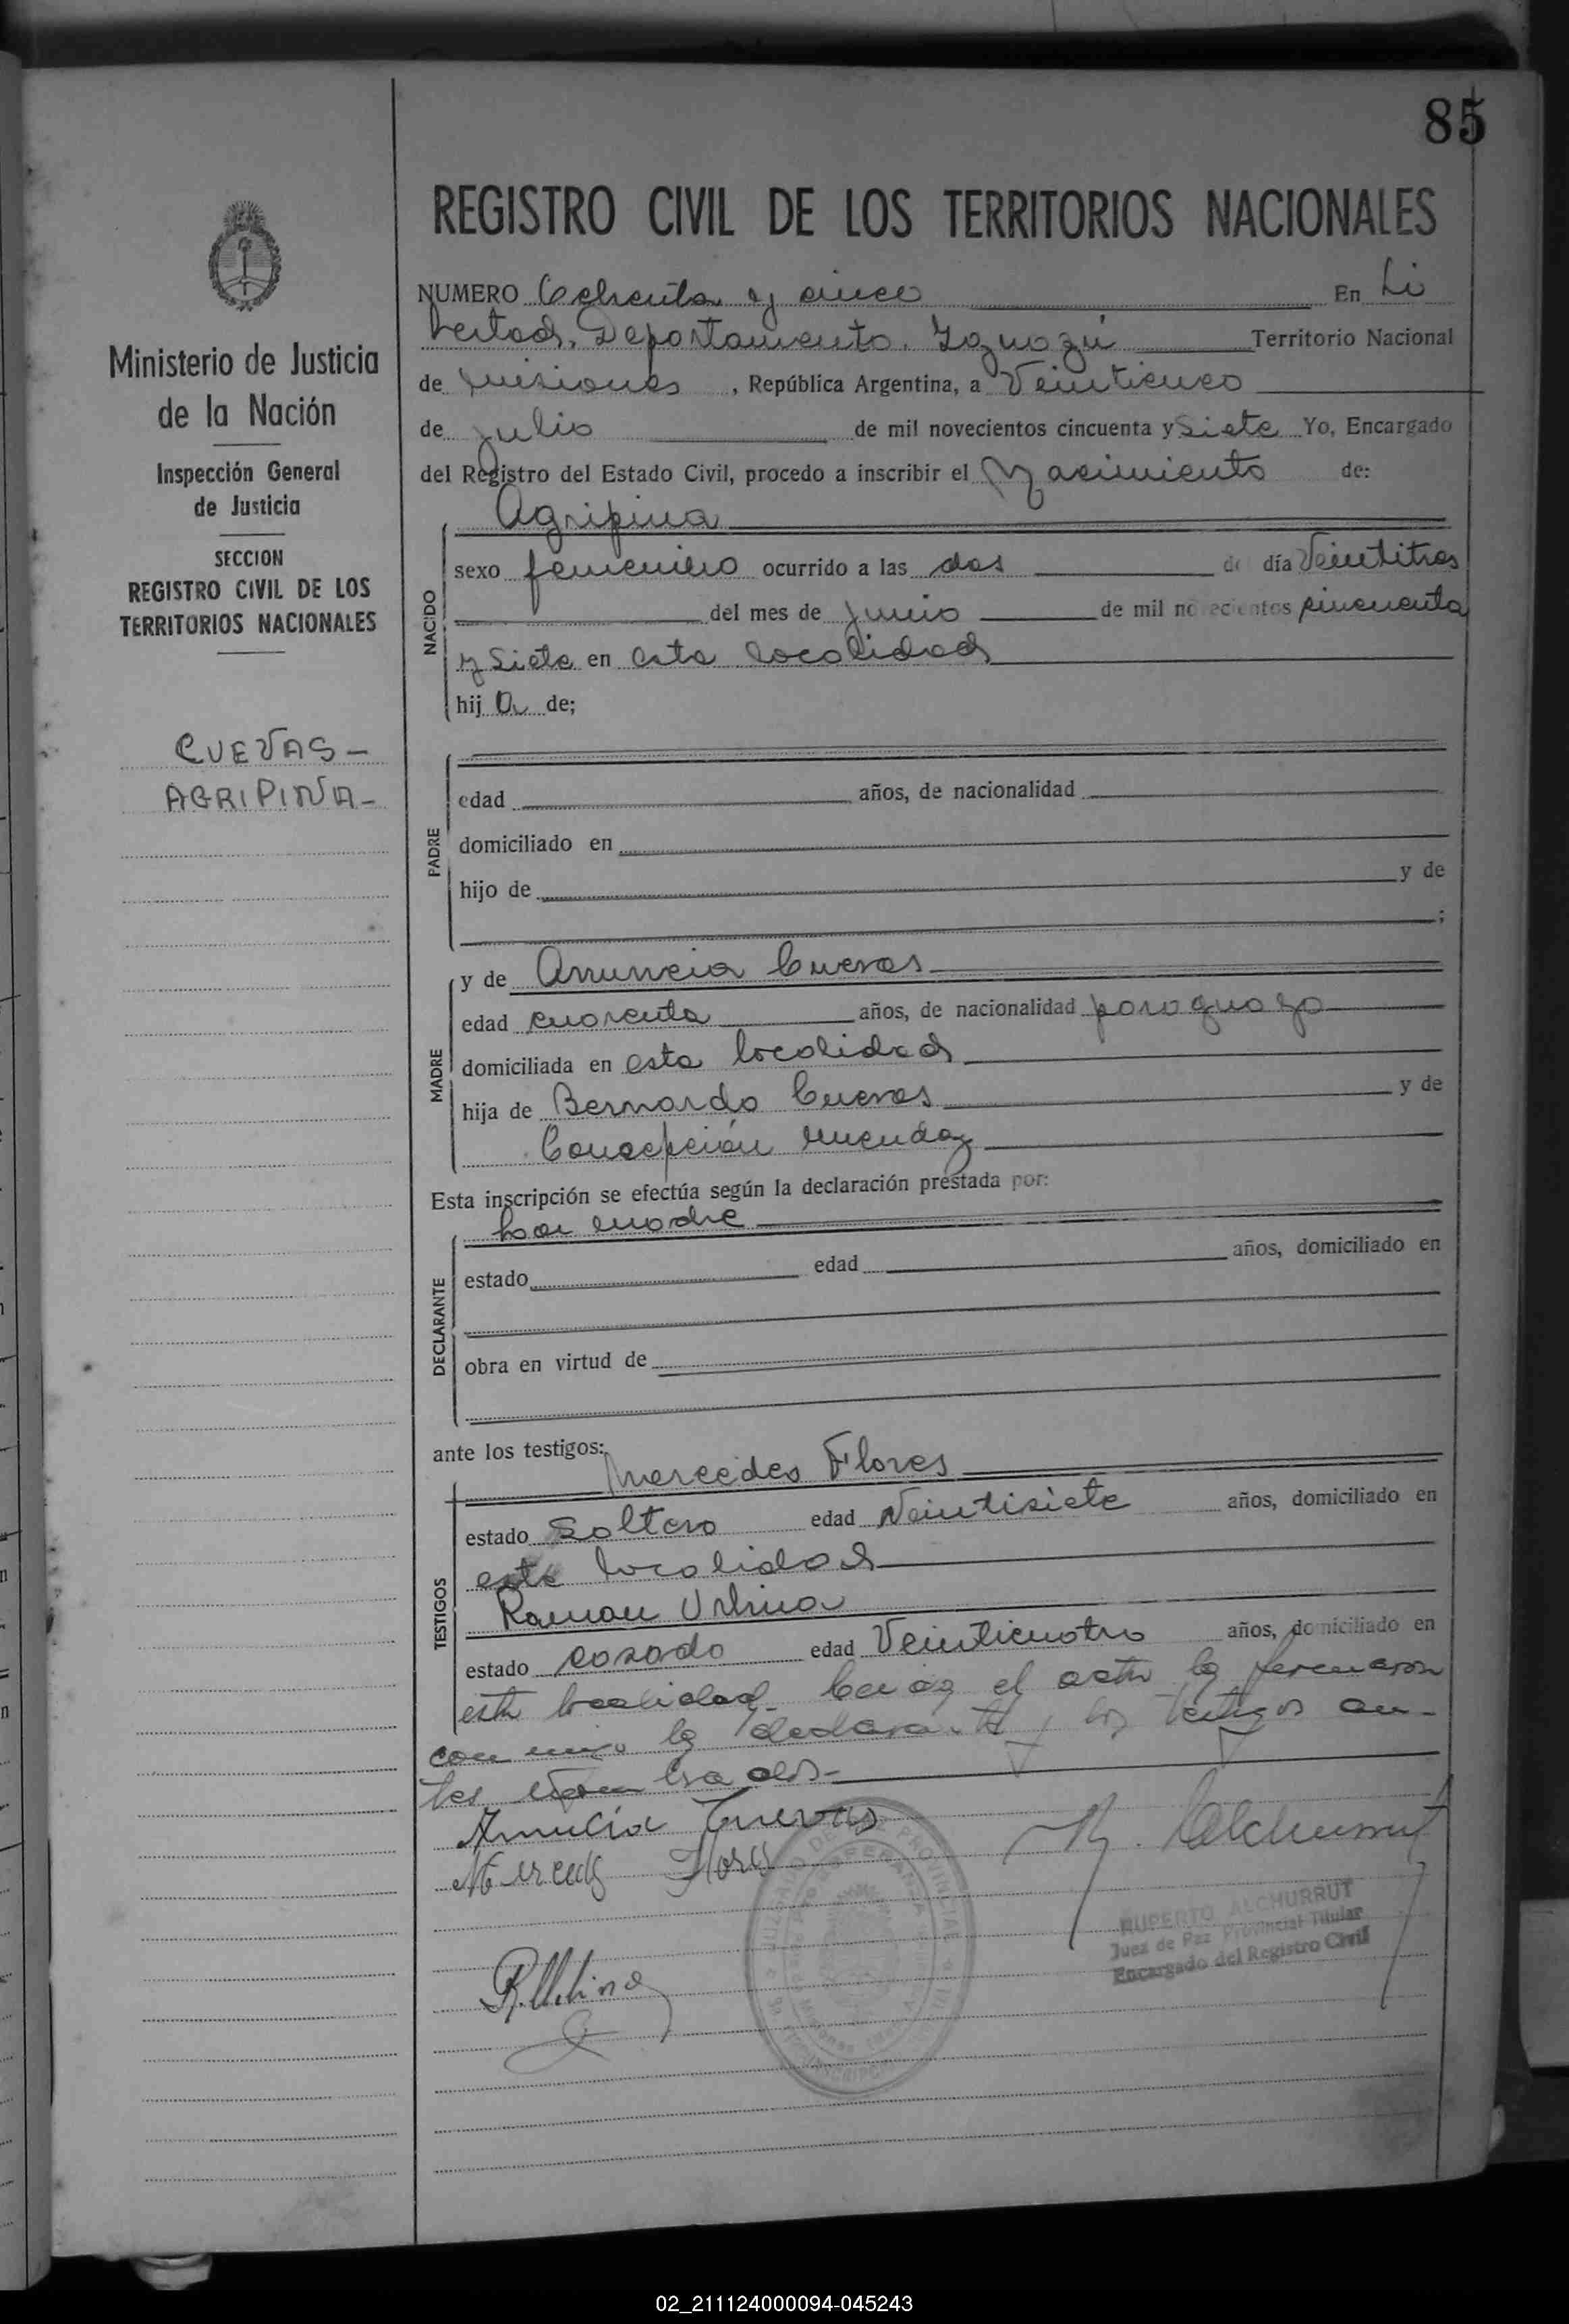 85
REGISTRO CIVIL DE LOS TERRITORIOS NACIONALES
Ministerio de Justicia
de la Nación
Inspección General
de Justicia
SECCION
REGISTRO CIVIL DE LOS
TERRITORIOS NACIONALES
CUEVAS -
AGRIPINA -
NUMERO Ochenta y cinco En Li
bertad, Departamento, Iguazú Territorio Nacional
de Misiones, República Argentina, a Veinticinco
de Julio de mil novecientos cincuenta y Siete Yo, Encargado
del Registro del Estado Civil, procedo a inscribir el Nacimiento de:
NACIDO
Agripina
sexo femenino ocurrido a las dos del día Veintitres
del mes de Junio de mil novecientos cincuenta
y Siete en esta localidad
hij a de;
PADRE
edad años, de nacionalidad
domiciliado en
hijo de y de
;
MADRE
y de Anuncia Cuevas
edad cuarenta años, de nacionalidad paraguaya
domiciliada en esta localidad
hija de Bernardo Cuevas y de
Concepción
Esta inscripción se efectúa según la declaración prestada por:
DECLARANTE
La madre
estado edad años, domiciliado en
obra en virtud de
ante los testigos:
TESTIGOS
Mercedes Flores
estado Soltero edad Veintisiete años, domiciliado en
esta localidad
Ramon
estado casado edad Veinticuatro años, domiciliado en
esta localidad el acta la firmaron
con migo la declarante y los testigos an-
tes
Anuncia Cuevas
Mercedes Flores
R. Alchurrut
RUPERTO ALCHURRUT
Juez de Paz Provincial Titular
Encargado del Registro Civil
02_211124000094-045243